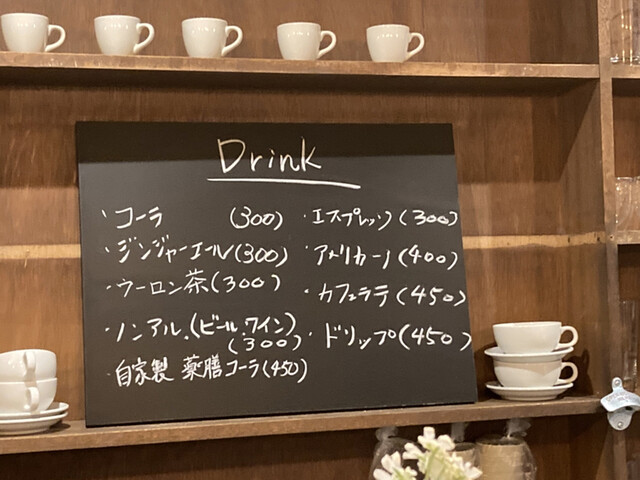 Drink
・コーラ (300)
・ジンジャーエール(300)
・ウーロン茶(300)
・ノンアル.(ビール.ワイン)
(300)
・自家製 薬膳コーラ(450)
・エスプレッソ(300)
・アメリカーノ(400)
・カフェラテ(450)
・ドリップ(450)